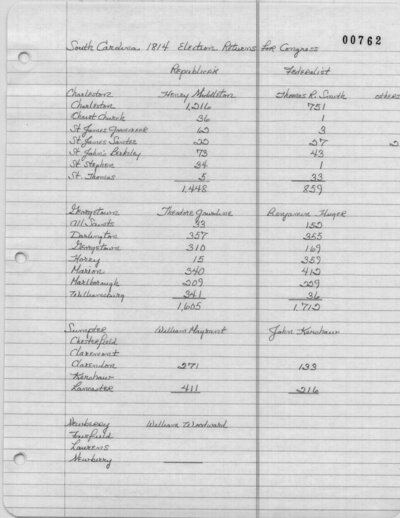 00762
South Carolina 1814 Election Returns For Congress
Republican Federalist
Charleston Henry Middleton Thomas R. Smith others
Charleston 1,216 751
Christ Church 36 1
St James Goosecreek 62 3
St James Santee 22 27 2
St John's Berkeley 73 43
St Stephen 34 1
St. Thomas 5 33
1,448 859
Georgetown Theodore Gourdine Benjamin Huger
All Saints 33 152
Darlington 357 355
Georgetown 310 169
Horry 15 359
Marion 340 412
Marlborough 209 229
Williamsburg 341 36
1,605 1,712
Sumpter William Mayrant John Kershaw
Chesterfield
Claremont
Clarendon 271 133
Kershaw
Lancaster 411 216
Newberry William Woodward
Fairfield
Laurens
Newberry